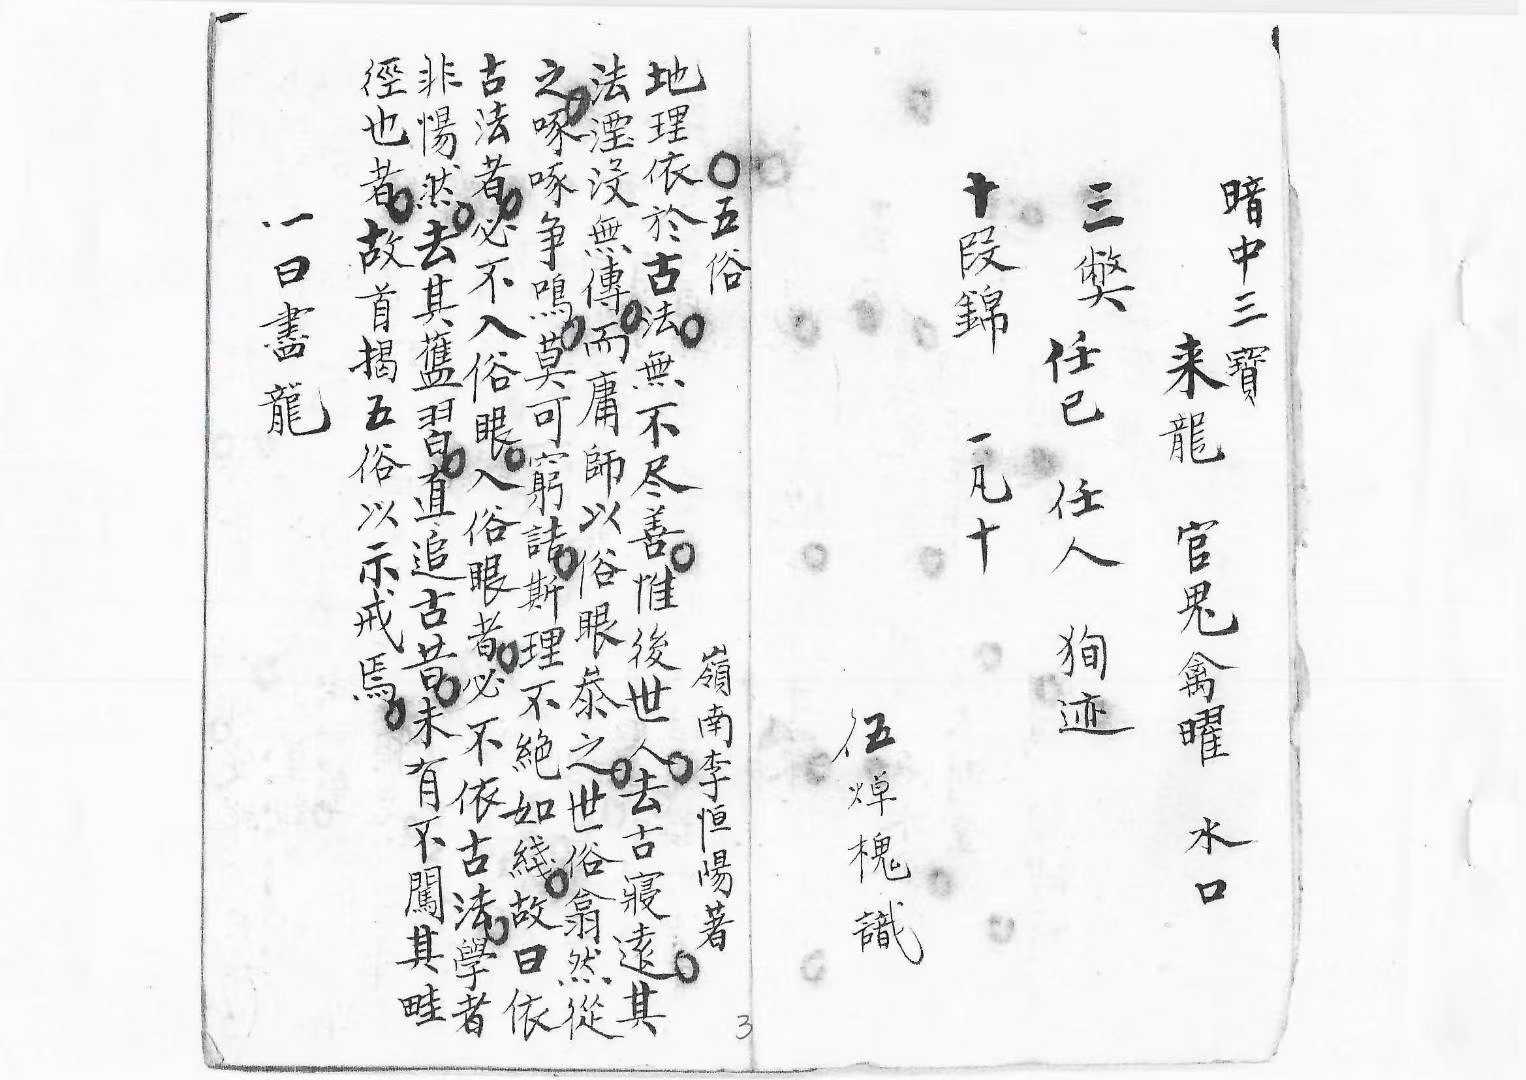 暗中三寶
来龍 官鬼禽曜 水口
三獘 任已 任人 狥迹
十段錦 一凡十
伍焯槐識
〇五俗
嶺南李恒陽著
地理依於古法無不尽善惟後世人去古寢遠其
法湮没無傳而庸師以俗眼叅之世俗翕然從
之啄啄争鳴莫可窮詰斯理不絶如綫故曰依
古法者必不入俗眼入俗眼者必不依古法學者
非惕然去其舊習直追古昔未有不闖其畦
徑也者故首揭五俗以示戒焉
一曰畵龍
3